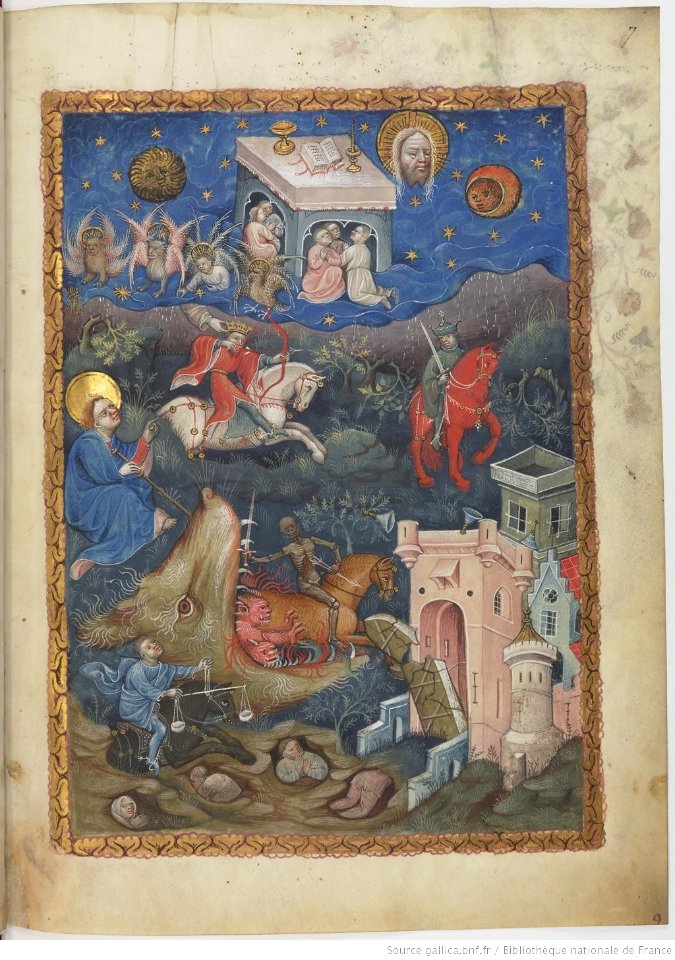 7
9
Source gallica.bnf.fr / Bibliothèque nationale de France